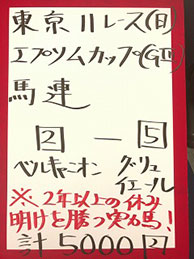 東京11レース(日)
エプソムカップ(GIII)
馬連
2 — 5
ベルキャニオン グリュイエール
※2年以上の休み
明けを勝つ実力馬!
計5000円